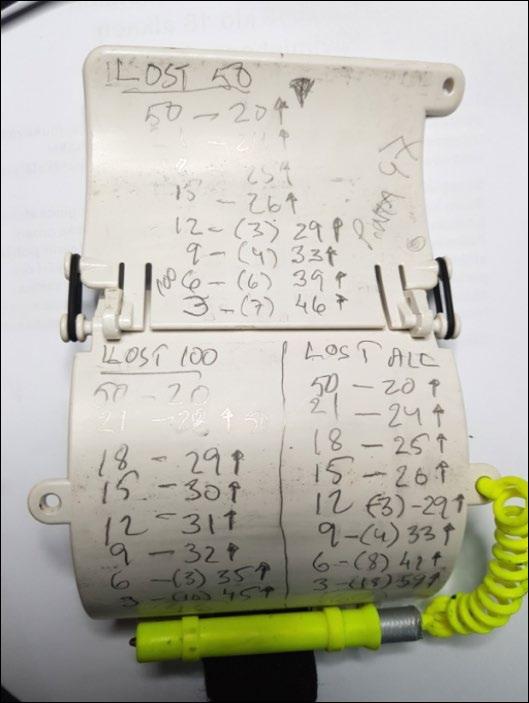 LOST 50
50 - 20↑
25↑
15 - 26↑
12 - (3) 29↑
9 - (4) 33↑
100 6 - (6) 39↑
3 - (7) 46↑
LOST 100
50 - 20
21 - 28 ↑
18 - 29↑
15 - 30↑
12 - 31↑
9 - 32↑
6 - (3) 35↑
3 - (10) 45↑
LOST ALL
50 - 20↑
21 - 24↑
18 - 25↑
15 - 26↑
12 (-3) - 29↑
9 - (4) 33↑
6 - (8) 41↑
3 - (18) 59↑